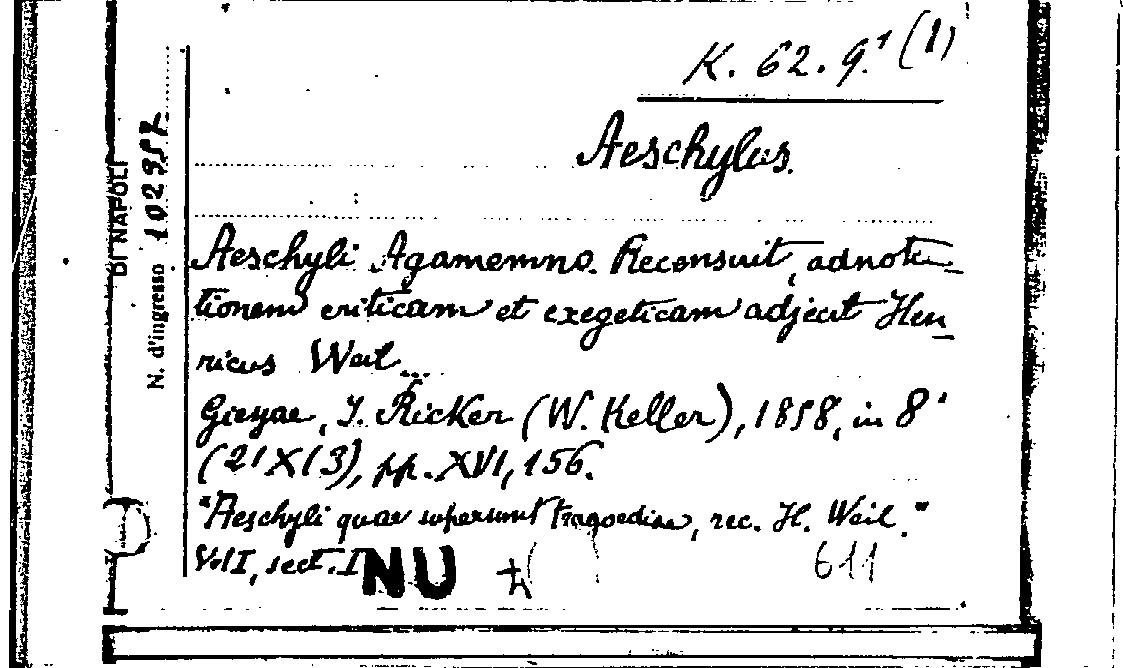 K. 62. 9.¹ (1)
Aeschylus.
DI NAPOLI
N. d'ingresso 102957
Aeschyli Agamemno. Recensuit, adnota-
tionem criticam et exegeticam adjecit Hen-
ricus Weil...
Gissae, J. Ricker (W. Keller), 1858, in 8°
(21X13), pp. XVI, 156.
"Aeschyli quae supersunt tragoediae, rec. H. Weil."
Vol I, sect. I
NU
611